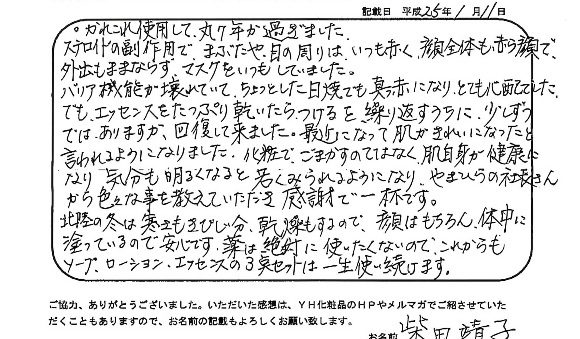 記載日 平成25年1月11日
。かれこれ使用して、丸7年が過ぎました。
ステロイドの副作用で まぶたや、目の周りは、いつも赤く、顔全体も赤ら顔で、
外出もままならず、マスクをいつもしていました。
バリア機能が壊れていて、ちょっとした日焼でも真っ赤になり、とても心配でした。
でも、エッセンスをたっぷり乾いたらつけるを繰り返すうちに、少しずつ
ではありますが、回復して来ました。最近になって肌がきれいになったと
言われるようになりました。化粧で、ごまかすのではなく、肌自身が健康に
なり 気分も明るくなると 若くみられるようになり、やまひらの社長さん
から色々な事を教えていただき 感謝で一杯です。
北陸の冬は寒さもきびしい分、乾燥もするので、顔はもちろん、体中に
塗っているので安心です。薬は絶対に使いたくないので、これからも
ソープ、ローション、エッセンスの3点セットは一生使い続けます。
ご協力、ありがとうございました。いただいた感想は、YH化粧品のHPやメルマガでご紹させていた
だくこともありますので、お名前の記載もよろしくお願い致します。
お名前 柴田靖子